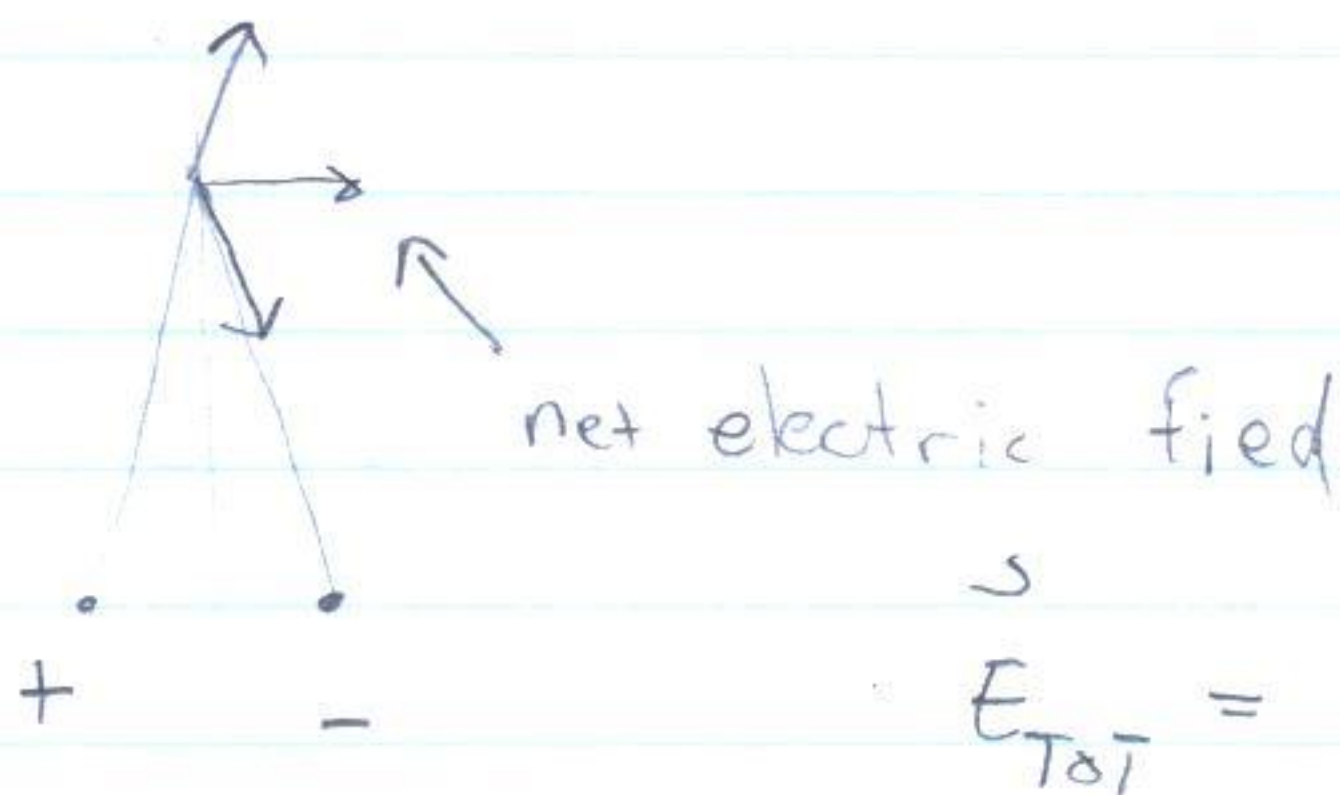 net electric fied
+ -
E_TOT =